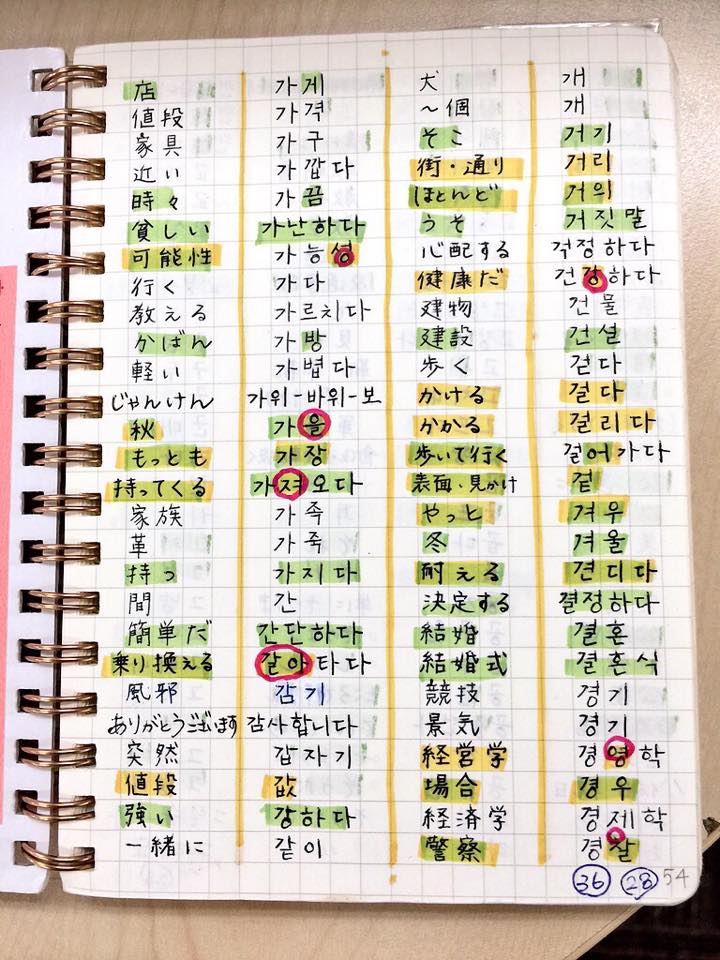 店 가게 犬 개
値段 가격 ～個 개
家具 가구 そこ 거기
近い 가깝다 街・通り 거리
時々 가끔 ほとんど 거의
貧しい 가난하다 うそ 거짓말
可能性 가능성 心配する 걱정하다
行く 가다 健康だ 건강하다
教える 가르치다 建物 건물
かばん 가방 建設 건설
軽い 가볍다 歩く 걷다
じゃんけん 가위-바위-보 かける 걸다
秋 가을 かかる 걸리다
もっとも 가장 歩いて行く 걸어가다
持ってくる 가져오다 表面・見かけ 겉
家族 가족 やっと 겨우
革 가죽 冬 겨울
持つ 가지다 耐える 견디다
間 간 決定する 결정하다
簡単だ 간단하다 結婚 결혼
乗り換える 갈아타다 結婚式 결혼식
風邪 감기 競技 경기
ありがとうございます 감사합니다 景気 경기
突然 갑자기 経営学 경영학
値段 값 場合 경우
強い 강하다 経済学 경제학
一緒に 같이 警察 경찰
36 28 54